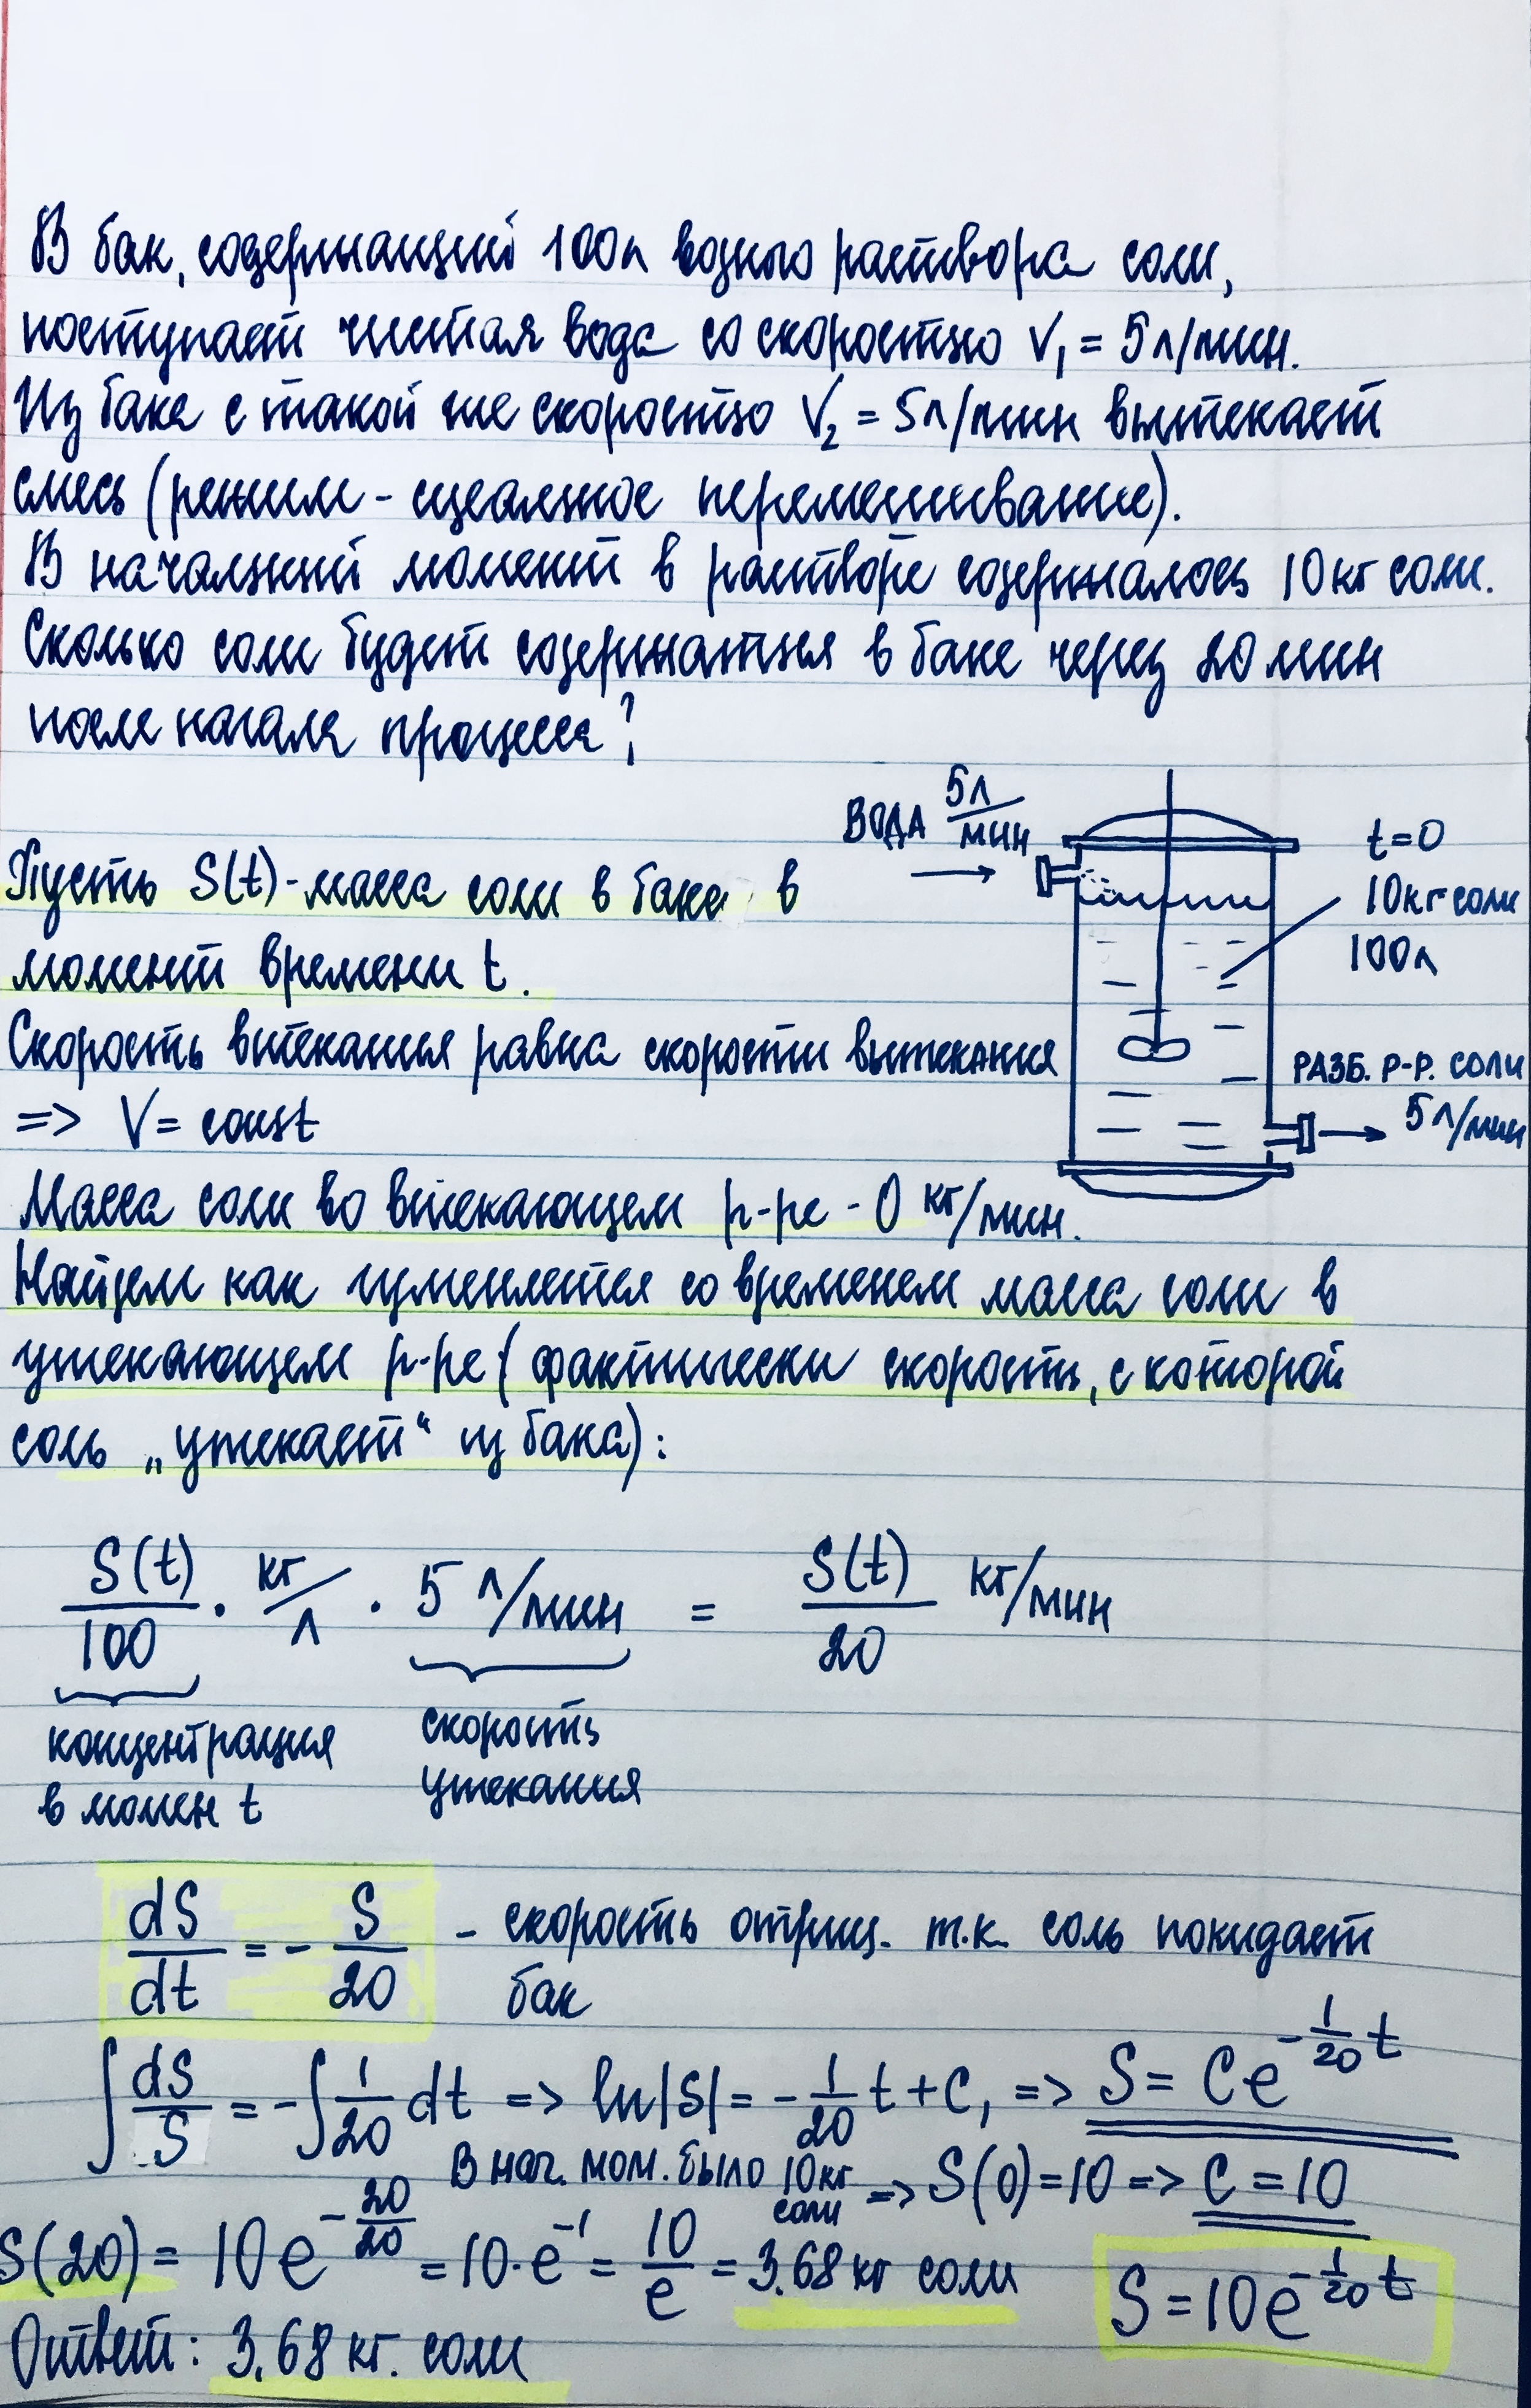 В бак, содержащий 100л водного раствора соли,
поступает чистая вода со скоростью V₁ = 5л/мин.
Из бака с такой же скоростью V₂ = 5л/мин вытекает
смесь (режим - идеальное перемешивание).
В начальный момент в растворе содержалось 10кг соли.
Сколько соли будет содержаться в баке через 20 мин
после начала процесса?
ВОДА 5л/мин
t=0
10кг соли
100л
РАЗБ. Р-Р. соли
5л/мин
Пусть S(t)-масса соли в баке в
момент времени t.
Скорость втекания равна скорости вытекания
=> V = const
Масса соли во втекающем р-ре - 0 кг/мин.
Найдем как изменяется со временем масса соли в
утекающем р-ре (фактически скорость, с которой
соль „утекает“ из бака):
S(t)/100 · кг/л · 5 л/мин = S(t)/20 кг/мин
концентрация в момен t
скорость утекания
dS/dt = - S/20 - скорость отриц. т.к. соль покидает
бак
∫ dS/S = -∫ 1/20 dt => ln|S| = -1/20 t + C₁ => S = Ce^(-1/20 t)
В нач. мом. было 10кг соли => S(0)=10 => C = 10
S(20) = 10e^(-20/20) = 10·e⁻¹ = 10/e = 3.68 кг соли
S = 10e^(-1/20 t)
Ответ: 3,68 кг. соли